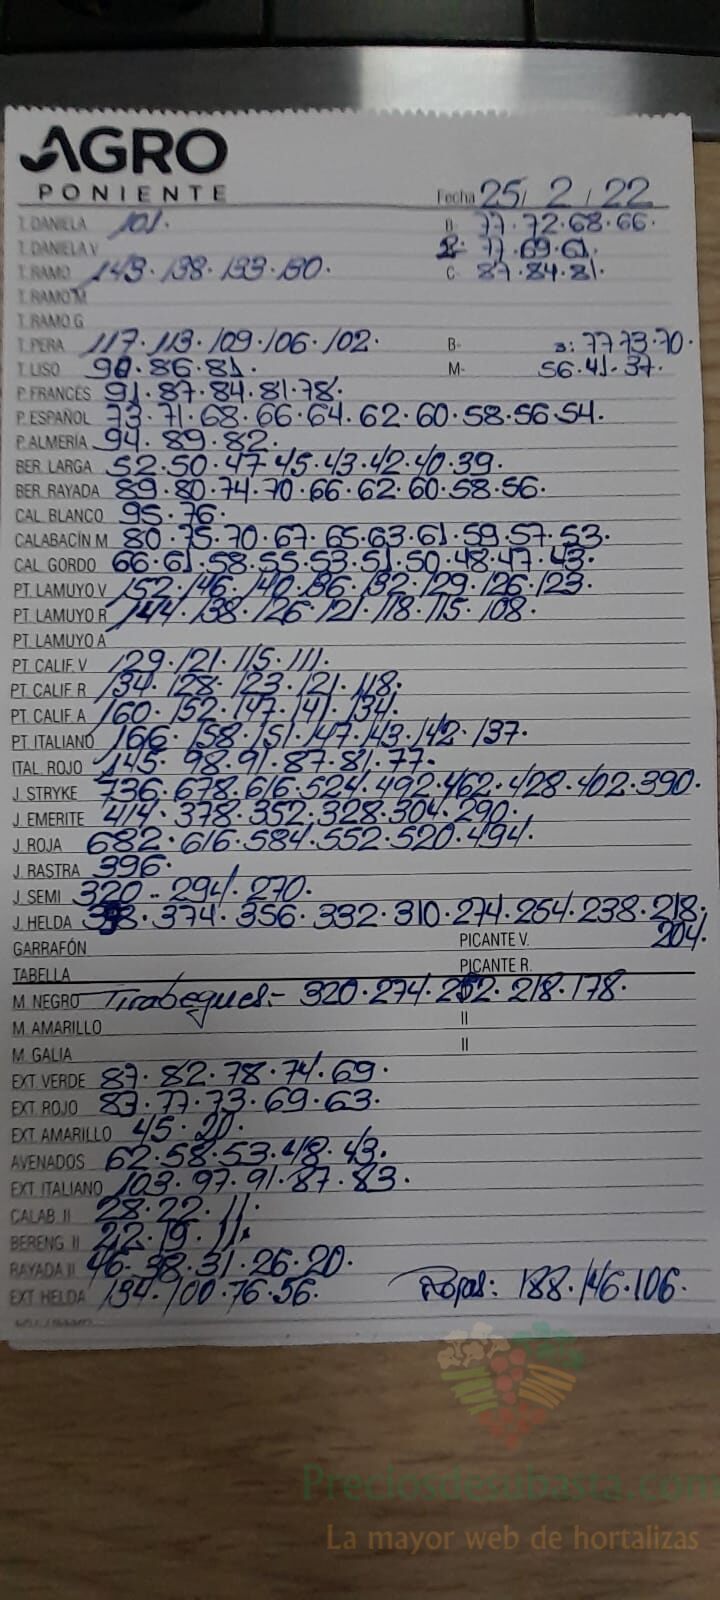 AGRO
PONIENTE
Fecha 25/ 2 / 22
T. DANIELA 101. B 77.72.68.66.
T. DANIELA V B. 77.69.61.
T. RAMO 143.138.133.130. C 87.84.81.
T. RAMO M
T. RAMO G
T. PERA 117.113.109.106.102. B- 3: 77.73.70.
T. LISO 90.86.81. M- 56.41.37.
P. FRANCÉS 91.87.84.81.78.
P. ESPAÑOL 73.71.68.66.64.62.60.58.56.54.
P. ALMERÍA 94.89.82.
BER. LARGA 52.50.47.45.43.42.40.39.
BER. RAYADA 89.80.74.70.66.62.60.58.56.
CAL. BLANCO 95.76.
CALABACÍN M 80.75.70.67.65.63.61.59.57.53.
CAL. GORDO 66.61.58.55.53.51.50.48.47.43.
PT. LAMUYO V 152.146.140.136.132.129.126.123.
PT. LAMUYO R 144.138.126.121.118.115.108.
PT. LAMUYO A
PT. CALIF. V 129.121.115.111.
PT. CALIF. R 134.128.123.121.118.
PT. CALIF. A 160.152.147.141.134.
PT. ITALIANO 166.158.151.147.143.142.137.
ITAL. ROJO 145.98.91.87.81.77.
J. STRYKE 736.678.616.524.492.462.428.402.390.
J. EMERITE 414.378.352.328.304.290.
J. ROJA 682.616.584.552.520.494.
J. RASTRA 396.
J. SEMI 320-294.270.
J. HELDA 398.374.356.332.310.274.254.238.218.
GARRAFÓN PICANTE V. 204.
TABELLA PICANTE R.
M NEGRO Tirabeques.- 320.274.252.218.178.
M AMARILLO II
M GALIA II
EXT. VERDE 87.82.78.74.69.
EXT. ROJO 83.77.73.69.63.
EXT. AMARILLO 45.20.
AVENADOS 62.58.53.48.43.
EXT. ITALIANO 103.97.91.87.83.
CALAB. II 28.22.11.
BERENG. II 22.19.11.
RAYADA II 46.38.31.26.20.
EXT. HELDA 134.100.76.56. 188.146.106.
Preciosdesubasta.com
La mayor web de hortalizas